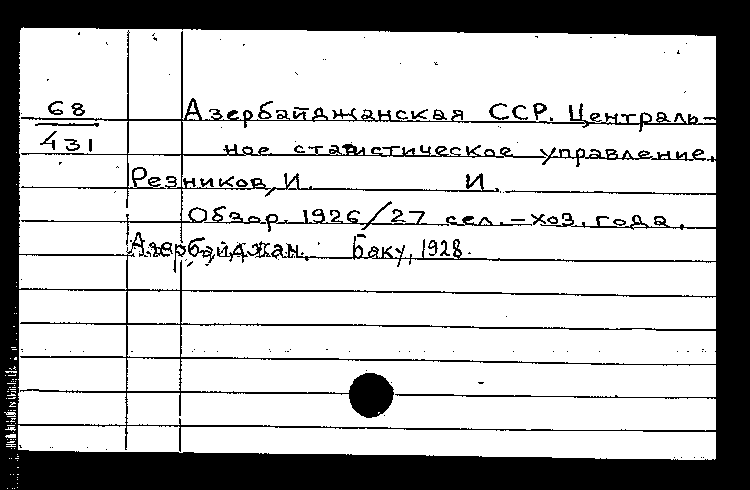 68
431
Азербайджанская ССР. Централь-
ное статистическое управление.
Резников, И. И.
Обзор. 1926/27 сел.-хоз. года.
Азербайджан. Баку, 1928.